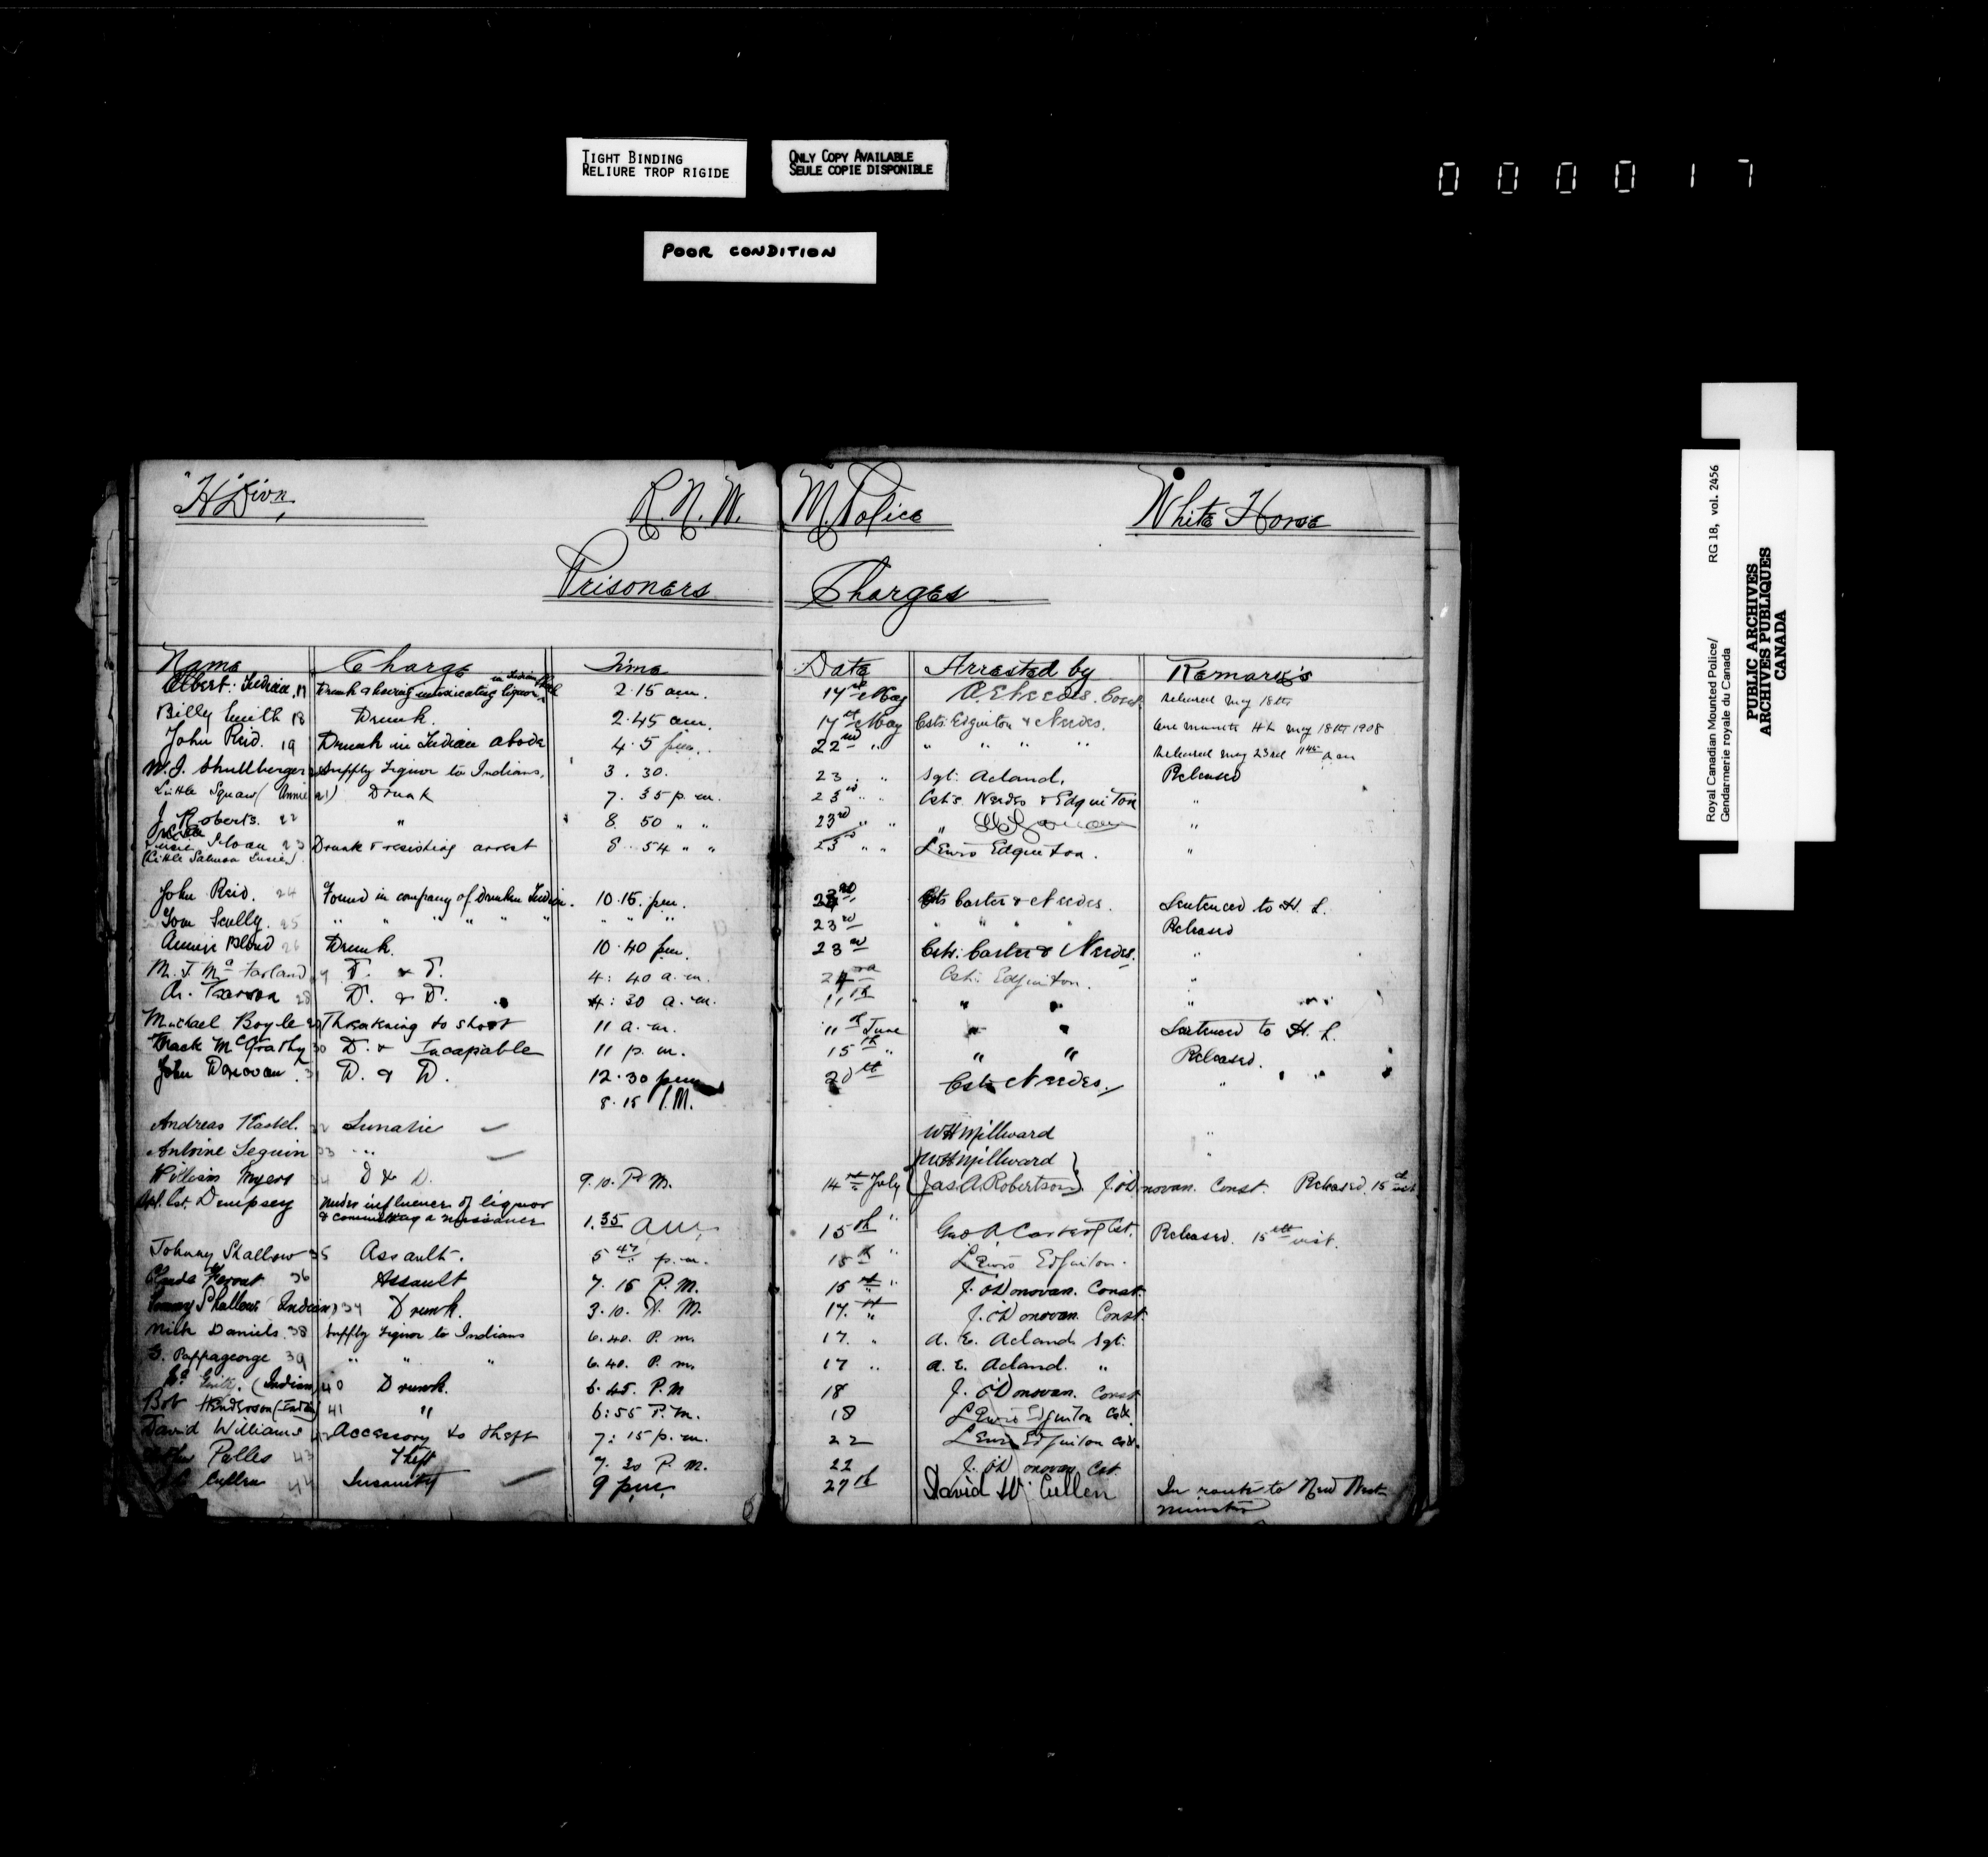 TIGHT BINDING
RELIURE TROP RIGIDE
ONLY COPY AVAILABLE
SEULE COPIE DISPONIBLE
000017
POOR CONDITION
Royal Canadian Mounted Police/ RG 18, vol. 2456
Gendarmerie royale du Canada
PUBLIC ARCHIVES
ARCHIVES PUBLIQUES
CANADA
"H" Divn, R.N.W. M. Police White Horse
Prisoners Charges
Name Charge Time Date Arrested by Remarks
in Indian
Albert Indian 17 Drunk & having intoxicating liquor 2.15 am. 17th May Needes. Const. Released May 18th
Billy Smith 18 Drunk. 2.45 am. 17th May Csts. Edginton & Needes. One month H L May 18th 1908
John Reid. 19 Drunk in Indian abode 4.5 pm. 22nd " " " " " Released May 23rd 11 45 a m
W.J. Shullberger Supply Liquor to Indians, 3.30. 23 . " Sgt. Acland. Released
Little Squaw (Annie 21) Drunk 7.35 p.m. 23rd " " Csts. Needes & Edginton "
J Roberts. 22 " 8 50 " " 23rd " " " "
Sloan 23 Drunk & resisting arrest 8.54 " " 23rd " " Lewis Edginton. "
(Little Salmon Susie)
John Reid. 24 Found in company of drunken Indian. 10.15. pm. 23rd Csts Carter & Needes. Sentenced to H. L.
Tom Scully. 25 " " " " " " " " " 23rd " " " Released
Annie Blood 26 Drunk. 10.40 pm. 23rd Csts. Carter & Needes. "
M. J. Mc Farland D. & D. 4:40 a.m. 24 Cst. Edginton. "
28 D. & D. 4:30 a.m. 11th " " "
Michael Boyle 29 Threatning to shoot 11 a.m. 11th June " " Sentenced to H. L.
Mack McGrathy 30 D. & Incapable 11 p.m. 15th " " " Released.
John Donovan. 31 D. & D. 12.30 pm 20th Cst. Needes. "
8.15 P.M.
Andreas 32 Lunatic W H Millward "
Antoine Seguin 33 " " W H Millward
William Myers 34 D & D. 9.10. P M. 14th July Jas. A. Robertson J. O'Donovan. Const. Released 15th inst
Cst. Dempsey under influence of liquor
& committing a nuisance 1.35 am. 15th " Geo A Carter Cst. Released. 15th inst.
Johnny Shallow 35 Assault. 5 47 p.m. 15th " Lewis Edginton.
36 Assault 7.15 P.M. 15th " J. O'Donovan. Const.
Shallow (Indian) 37 Drunk. 3.10. A.M. 17th " J. O'Donovan Const.
Daniels. 38 Supply Liquor to Indians 6.40. P.m. 17. " A. E. Acland Sgt.
G. Pappageorge 39 " " " 6.40. P.m. 17 " A. E. Acland. "
(Indian) 40 Drunk. 6.45. P.M 18 J. O'Donovan. Const
Bob Henderson (Indian) 41 " 6:55 P.M. 18 Lewis Edginton Cst.
David Williams 42 Accessory to theft 7:15 p.m. 22 Lewis Edginton Cst.
Pelles 43 Theft 7.20 P.M. 22 J. O'Donovan Cst.
Cullen 44 Insanity 9 pm. 27th David W. Cullen In route to New West
minster